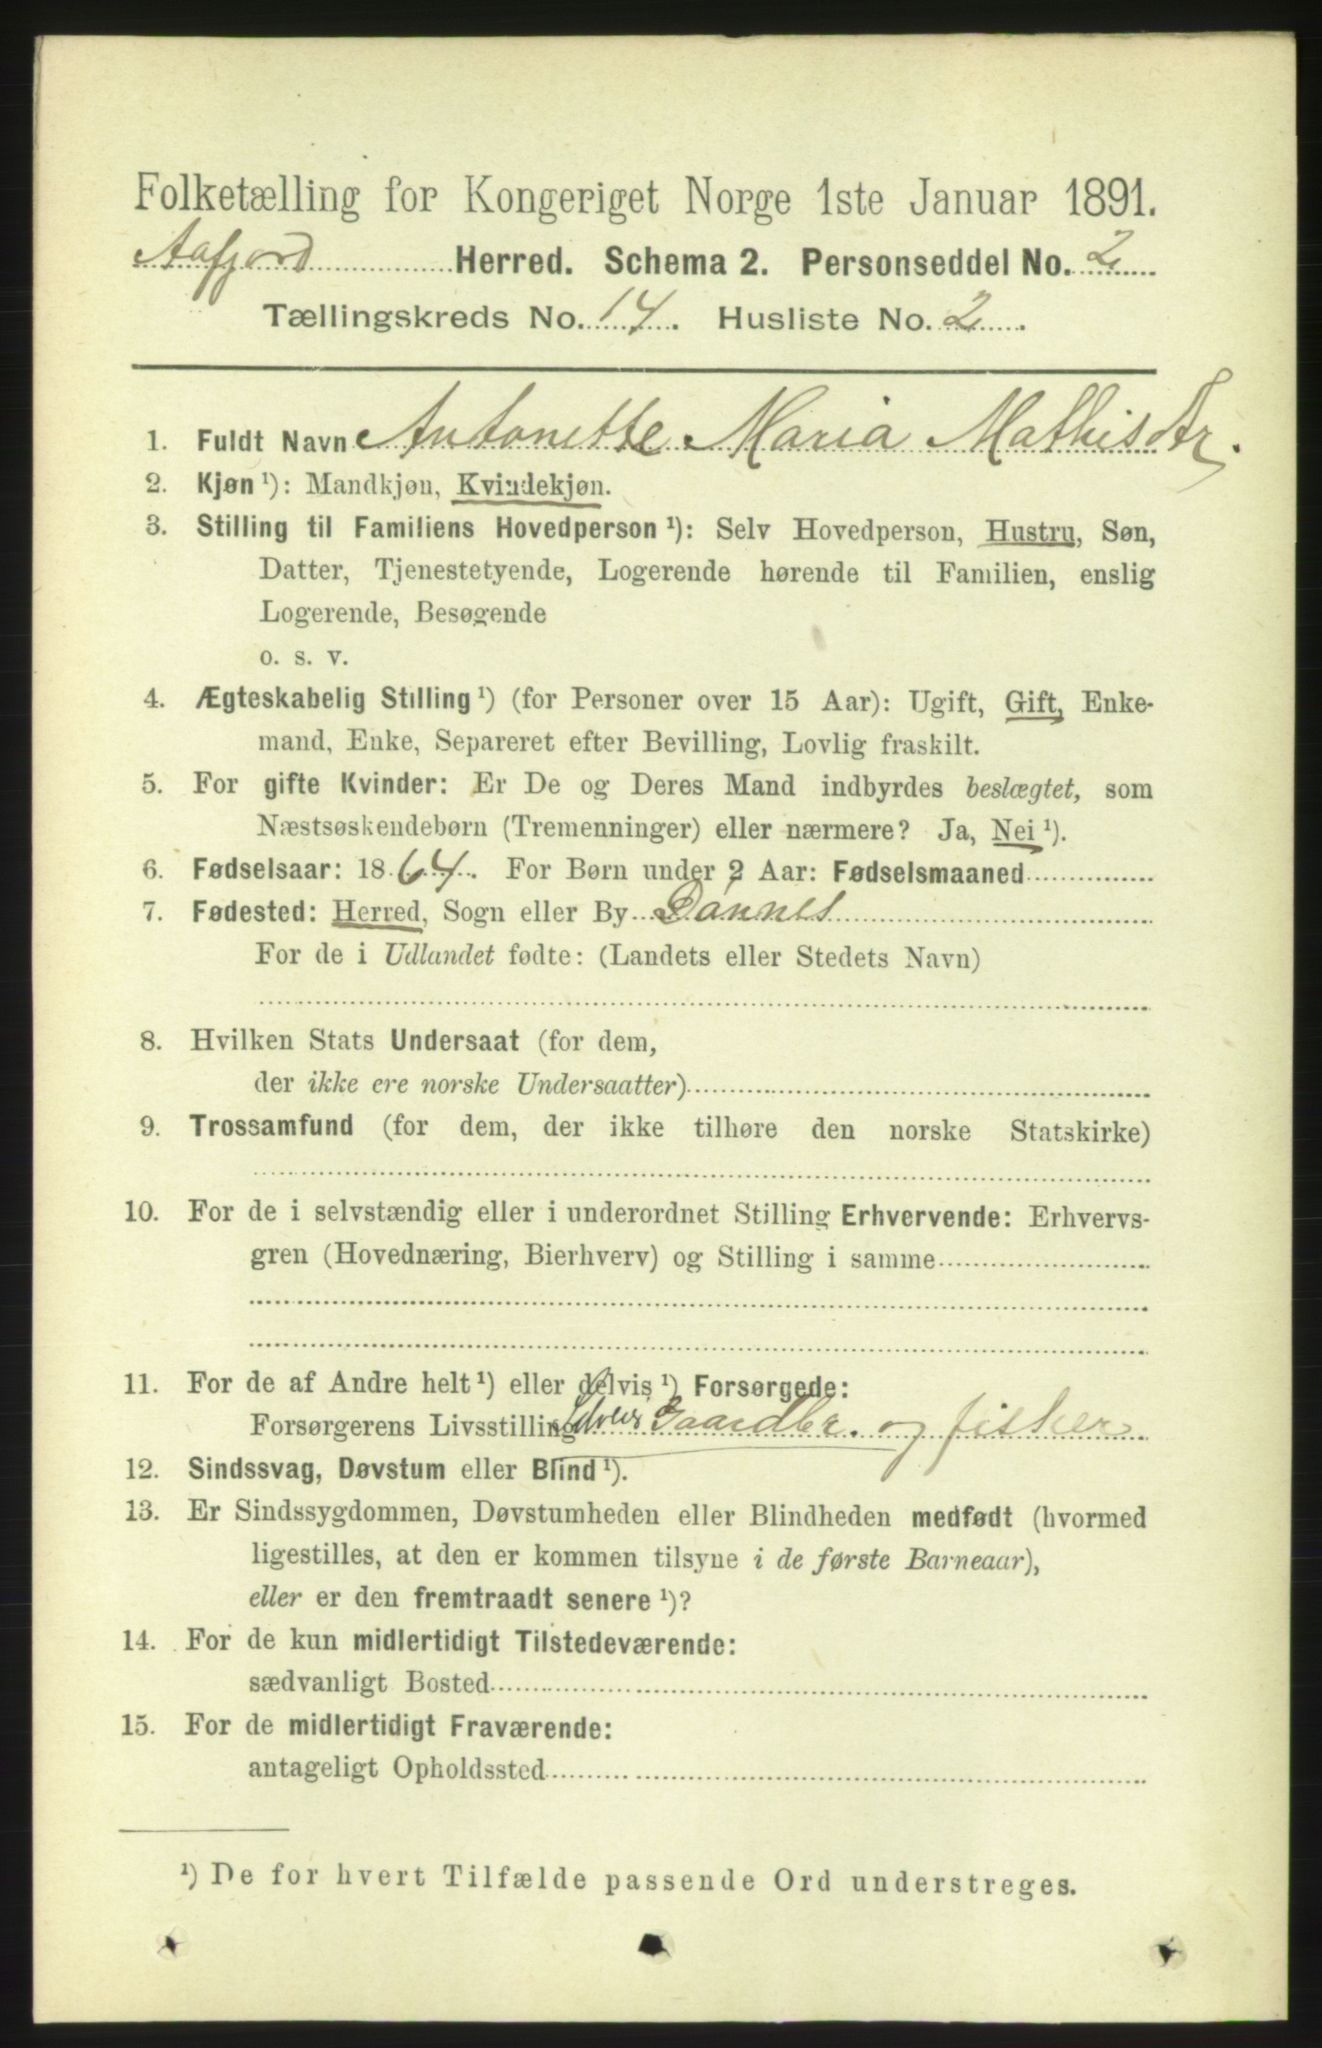 Folketælling for Kongeriget Norge 1ste Januar 1891.
Aafjord Herred. Schema 2. Personseddel No. 2
Tællingskreds No. 14. Husliste No. 2.
1. Fuldt Navn Antonette Maria Mathisdtr.
2. Kjøn ¹): Mandkjøn, Kvindekjøn.
3. Stilling til Familiens Hovedperson ¹): Selv Hovedperson, Hustru, Søn,
Datter, Tjenestetyende, Logerende hørende til Familien, enslig
Logerende, Besøgende
o. s. v.
4. Ægteskabelig Stilling ¹) (for Personer over 15 Aar): Ugift, Gift, Enke-
mand, Enke, Separeret efter Bevilling, Lovlig fraskilt.
5. For gifte Kvinder: Er De og Deres Mand indbyrdes beslægtet, som
Næstsøskendebørn (Tremenninger) eller nærmere? Ja, Nei ¹).
6. Fødselsaar: 1864. For Børn under 2 Aar: Fødselsmaaned
7. Fødested: Herred, Sogn eller By Dönnes
For de i Udlandet fødte: (Landets eller Stedets Navn)
8. Hvilken Stats Undersaat (for dem,
der ikke ere norske Undersaatter)
9. Trossamfund (for dem, der ikke tilhøre den norske Statskirke)
10. For de i selvstændig eller i underordnet Stilling Erhvervende: Erhvervs-
gren (Hovednæring, Bierhverv) og Stilling i samme
11. For de af Andre helt ¹) eller delvis ¹) Forsørgede:
Forsørgerens Livsstilling Selveier Gaardbr. og fisker
12. Sindssvag, Døvstum eller Blind ¹).
13. Er Sindssygdommen, Døvstumheden eller Blindheden medfødt (hvormed
ligestilles, at den er kommen tilsyne i de første Barneaar),
eller er den fremtraadt senere ¹)?
14. For de kun midlertidigt Tilstedeværende:
sædvanligt Bosted
15. For de midlertidigt Fraværende:
antageligt Opholdssted
¹) De for hvert Tilfælde passende Ord understreges.